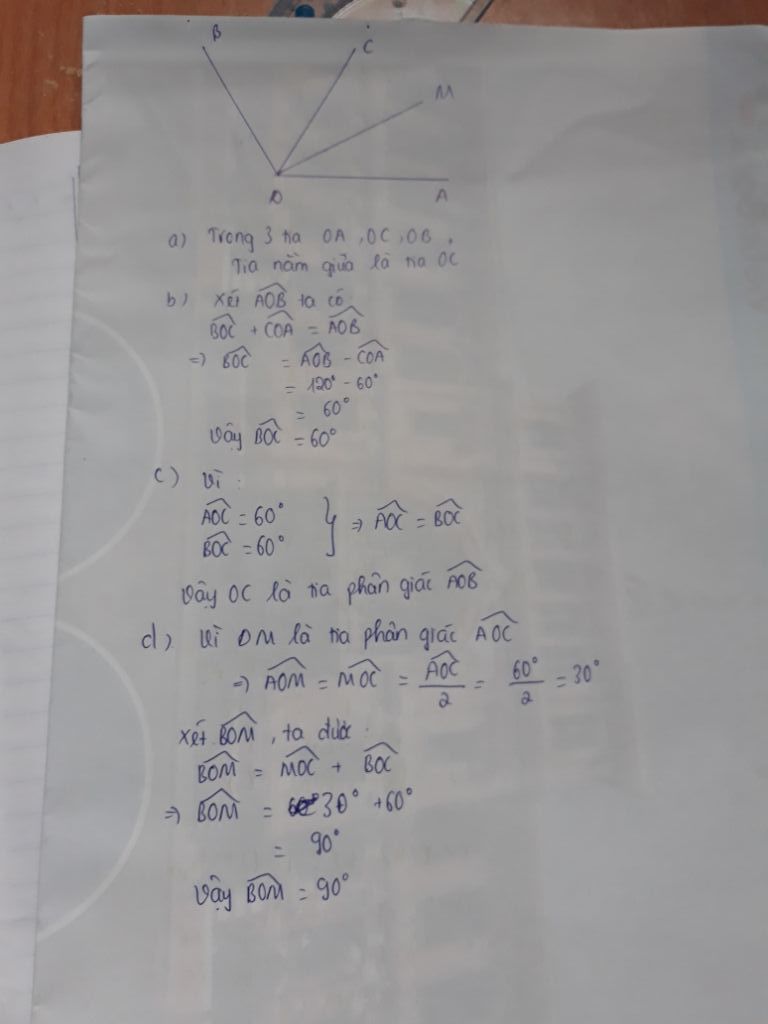 B
C
M
O
A
a) Trong 3 tia OA, OC, OB,
Tia nằm giữa là tia OC
b) Xét A͡OB ta có:
B͡OC + C͡OA = A͡OB
=> B͡OC = A͡OB - C͡OA
= 120° - 60°
= 60°
Vậy B͡OC = 60°
c) Vì :
A͡OC = 60°
B͡OC = 60°
} => A͡OC = B͡OC
Vậy OC là tia phân giác A͡OB
d) Vì OM là tia phân giác A͡OC
=> A͡OM = M͡OC = A͡OC/2 = 60°/2 = 30°
Xét B͡OM, ta được :
B͡OM = M͡OC + B͡OC
=> B͡OM = 30° + 60°
= 90°
Vậy B͡OM = 90°